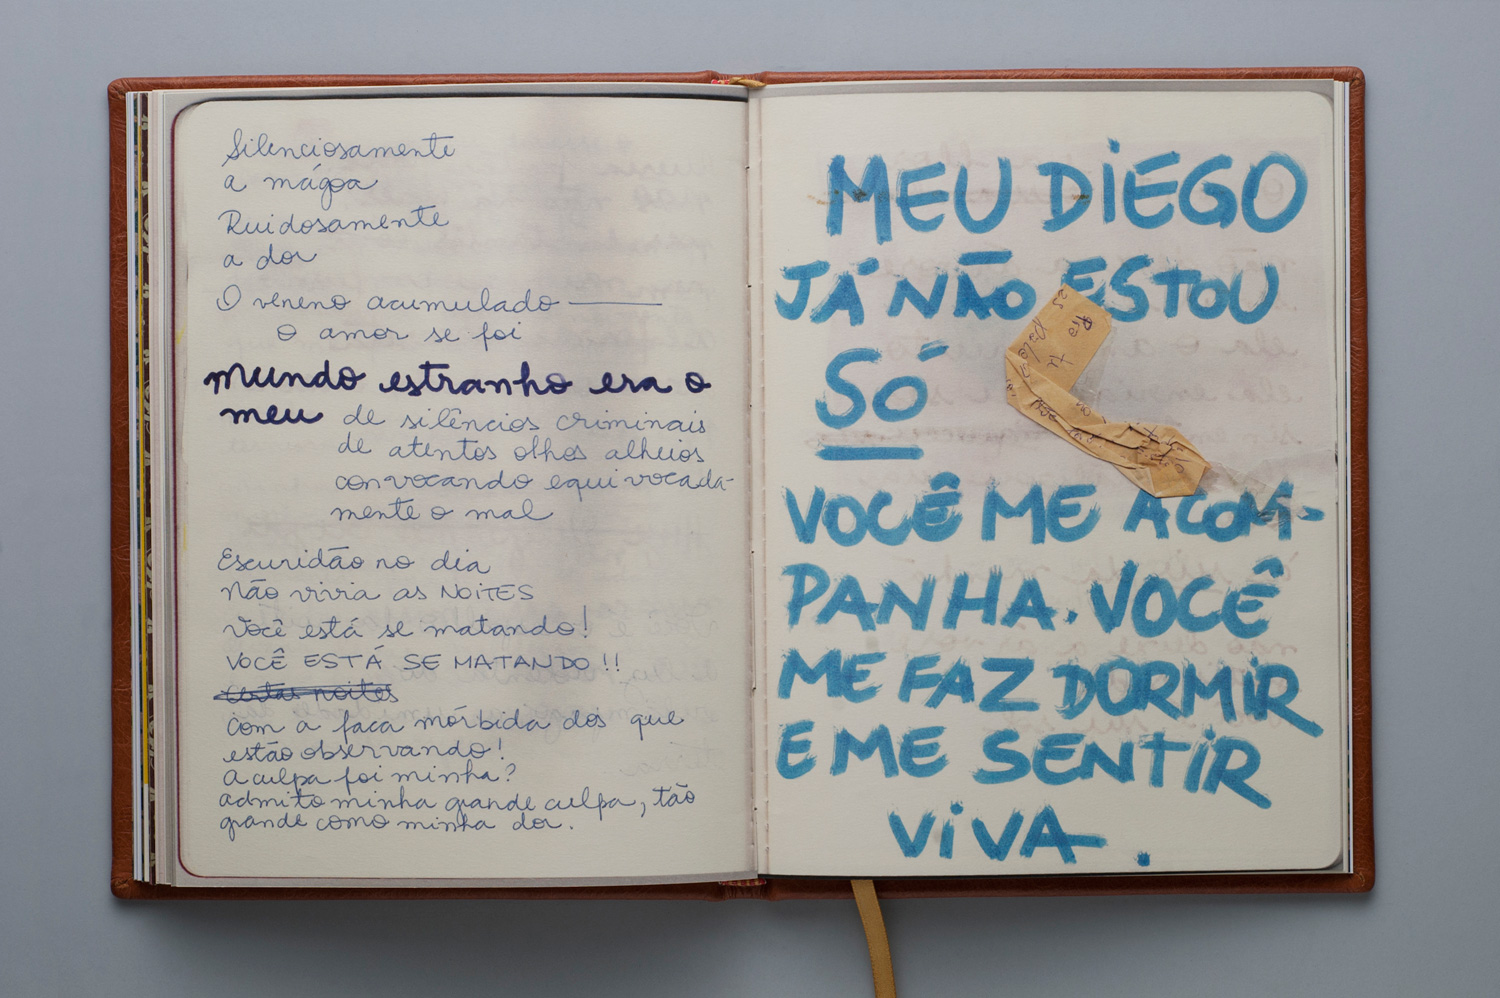 Silenciosamente
a mágoa
Ruidosamente
a dor
O veneno acumulado ———
o amor se foi
mundo estranho era o
meu de silêncios criminais
de atentos olhos alheios
convocando equivocada-
mente o mal
Escuridão no dia
não vivia as NOITES
você está se matando!
VOCÊ ESTÁ SE MATANDO!!
certas noites
com a faca mórbida dos que
estão observando!
A culpa foi minha?
admito minha grande culpa, tão
grande como minha dor.
MEU DIEGO
JÁ NÃO ESTOU
SÓ
VOCÊ ME ACOM-
PANHA. VOCÊ
ME FAZ DORMIR
E ME SENTIR
VIVA.